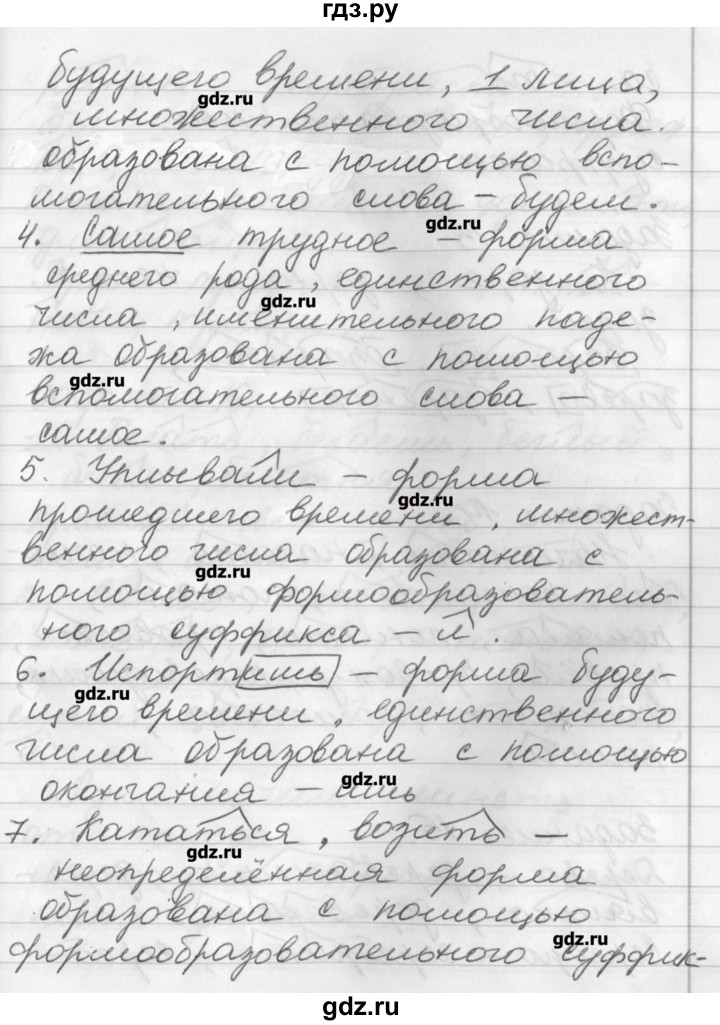 гдз.ру
будущего времени, 1 лица,
gdz.ru
множественного числа.
образована с помощью вспо-
могательного слова – будем.
gdz.ru
4. Самое трудное – форма
среднего рода, единственного
gdz.ru
числа, именительного паде-
жа образована с помощью
gdz.ru
вспомогательного слова –
самое.
5. Уплывали – форма
gdz.ru
прошедшего времени, множест-
венного числа образована с
gdz.ru
помощью формообразователь-
ного суффикса – л.
6. Испортишь – форма буду-
gdz.ru
щего времени, единственного
числа образована с помощью
gdz.ru
окончания – ишь
7. Кататься, возить –
gdz.ru
неопределённая форма
образована с помощью
gdz.ru
формообразовательного суффик-
gdz.ru